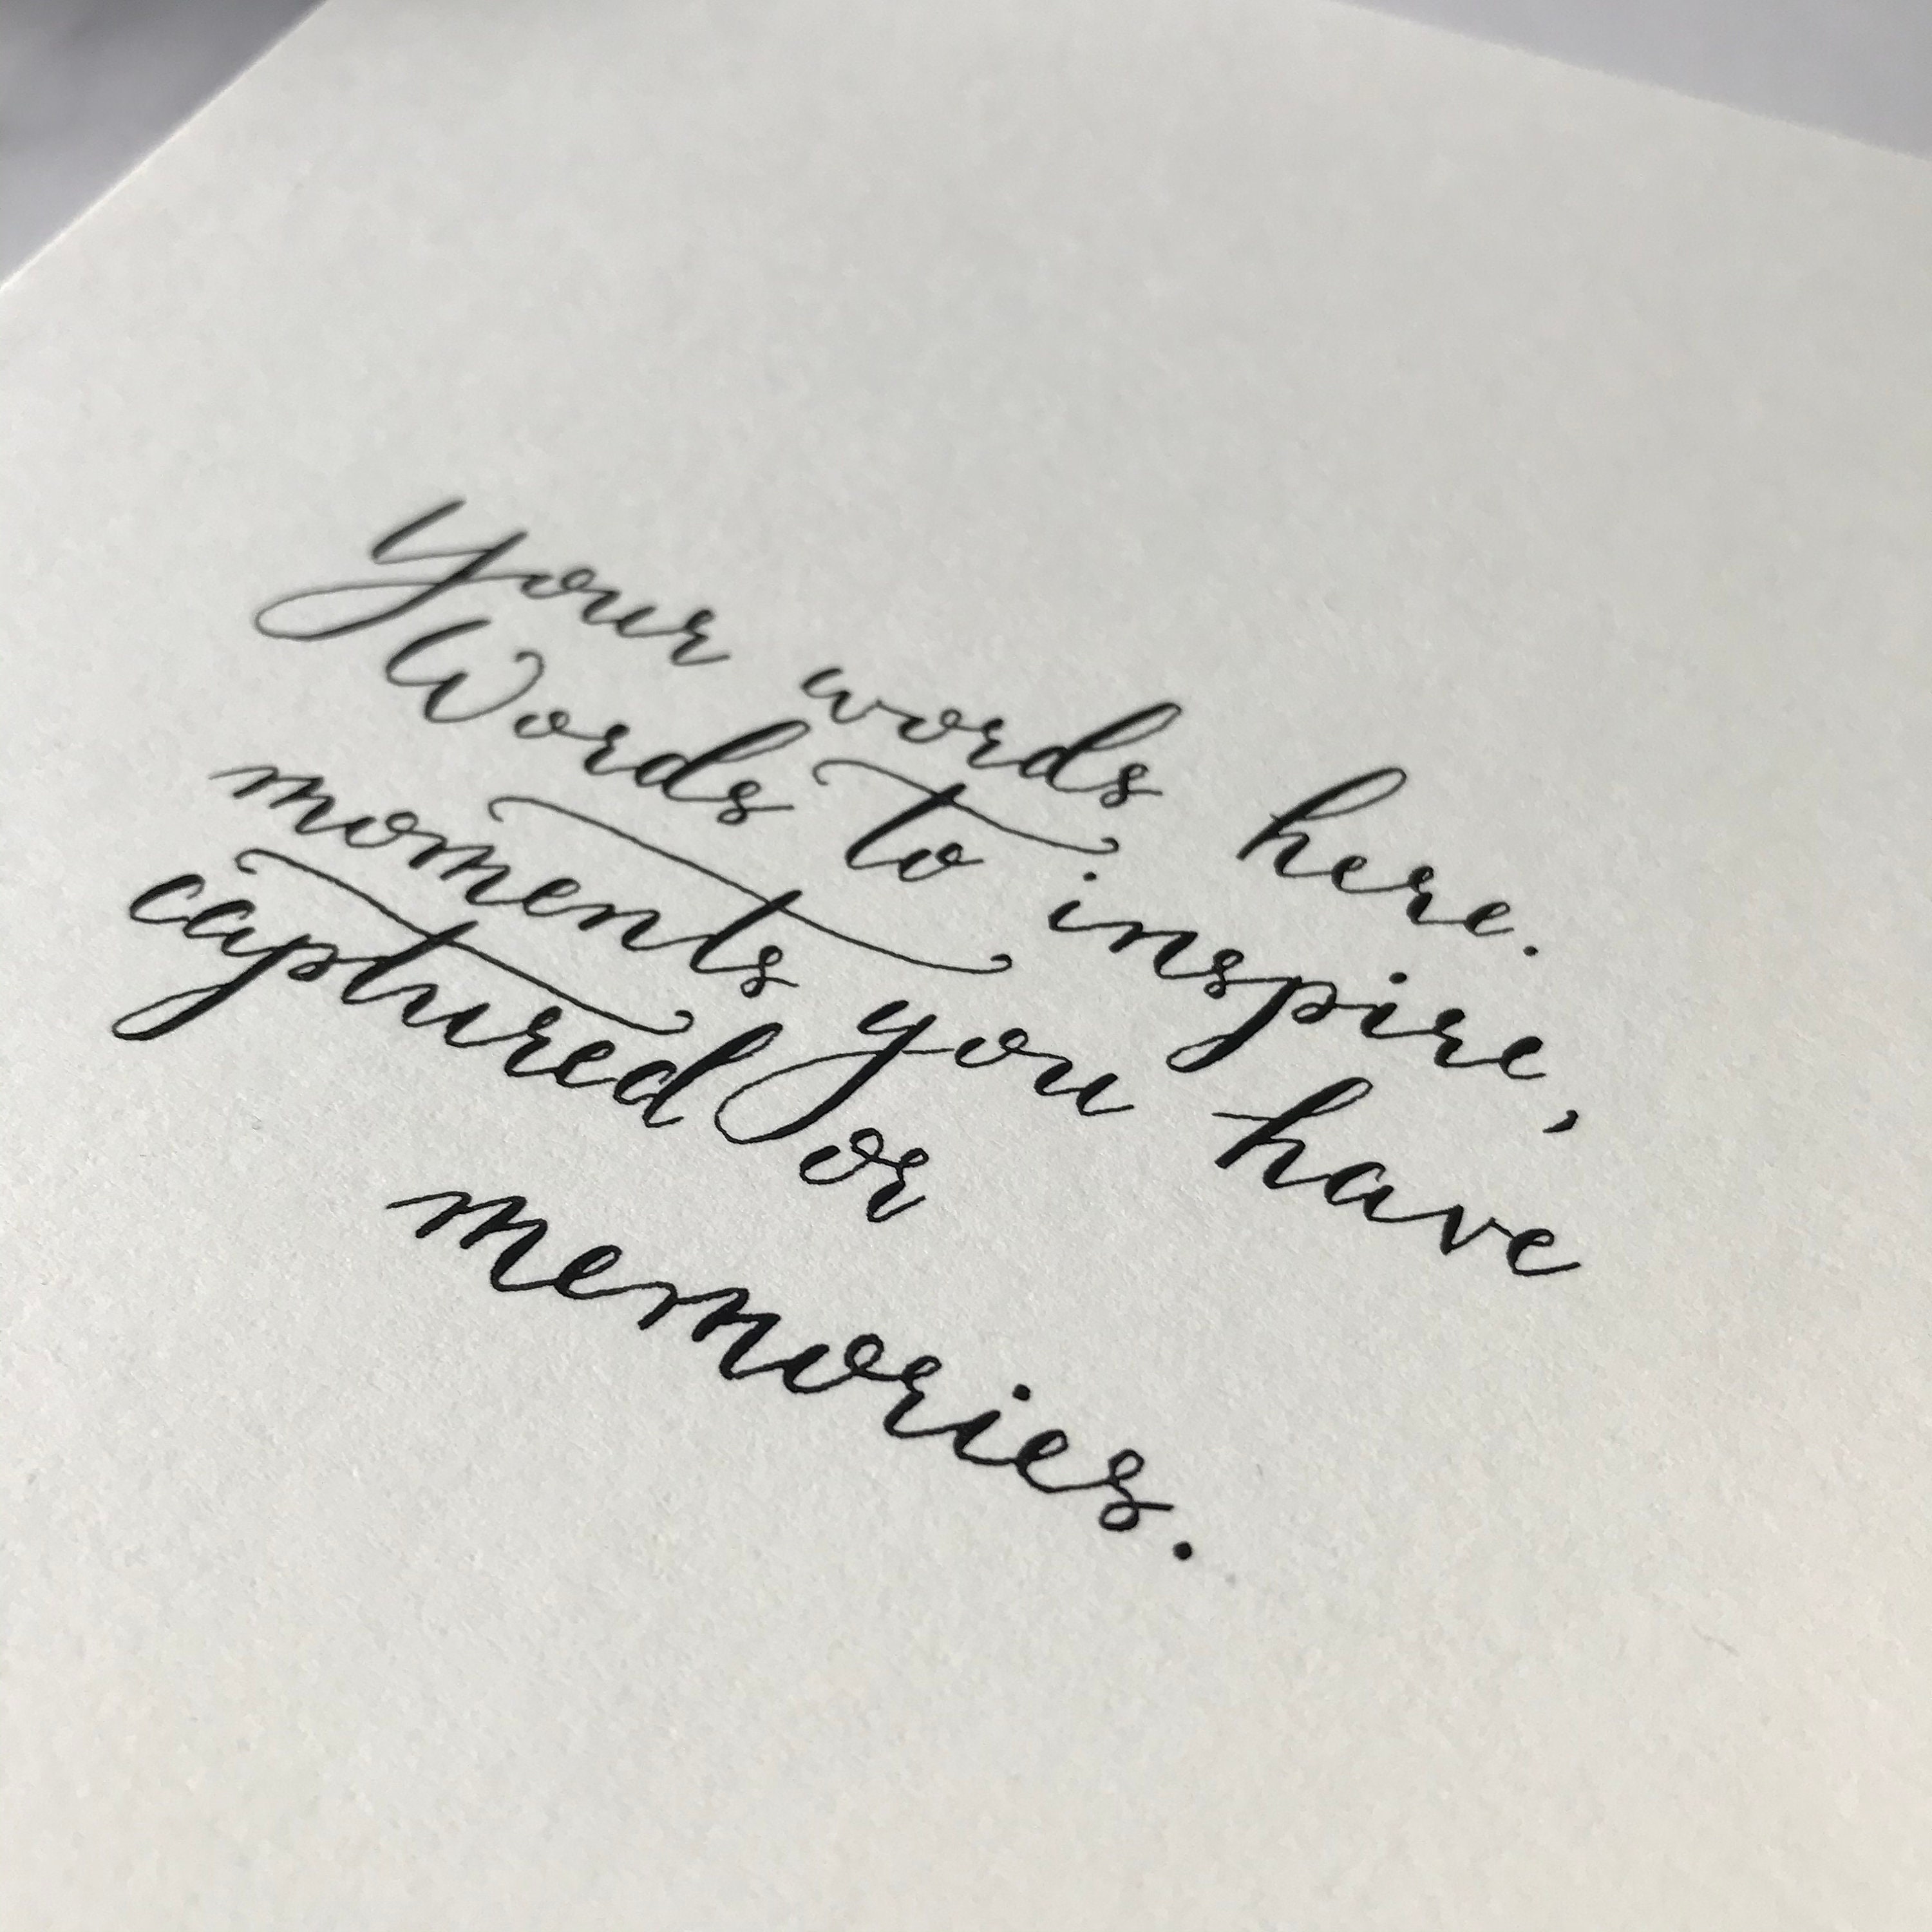 Your words here.
Words to inspire,
moments you have
captured or
memories.